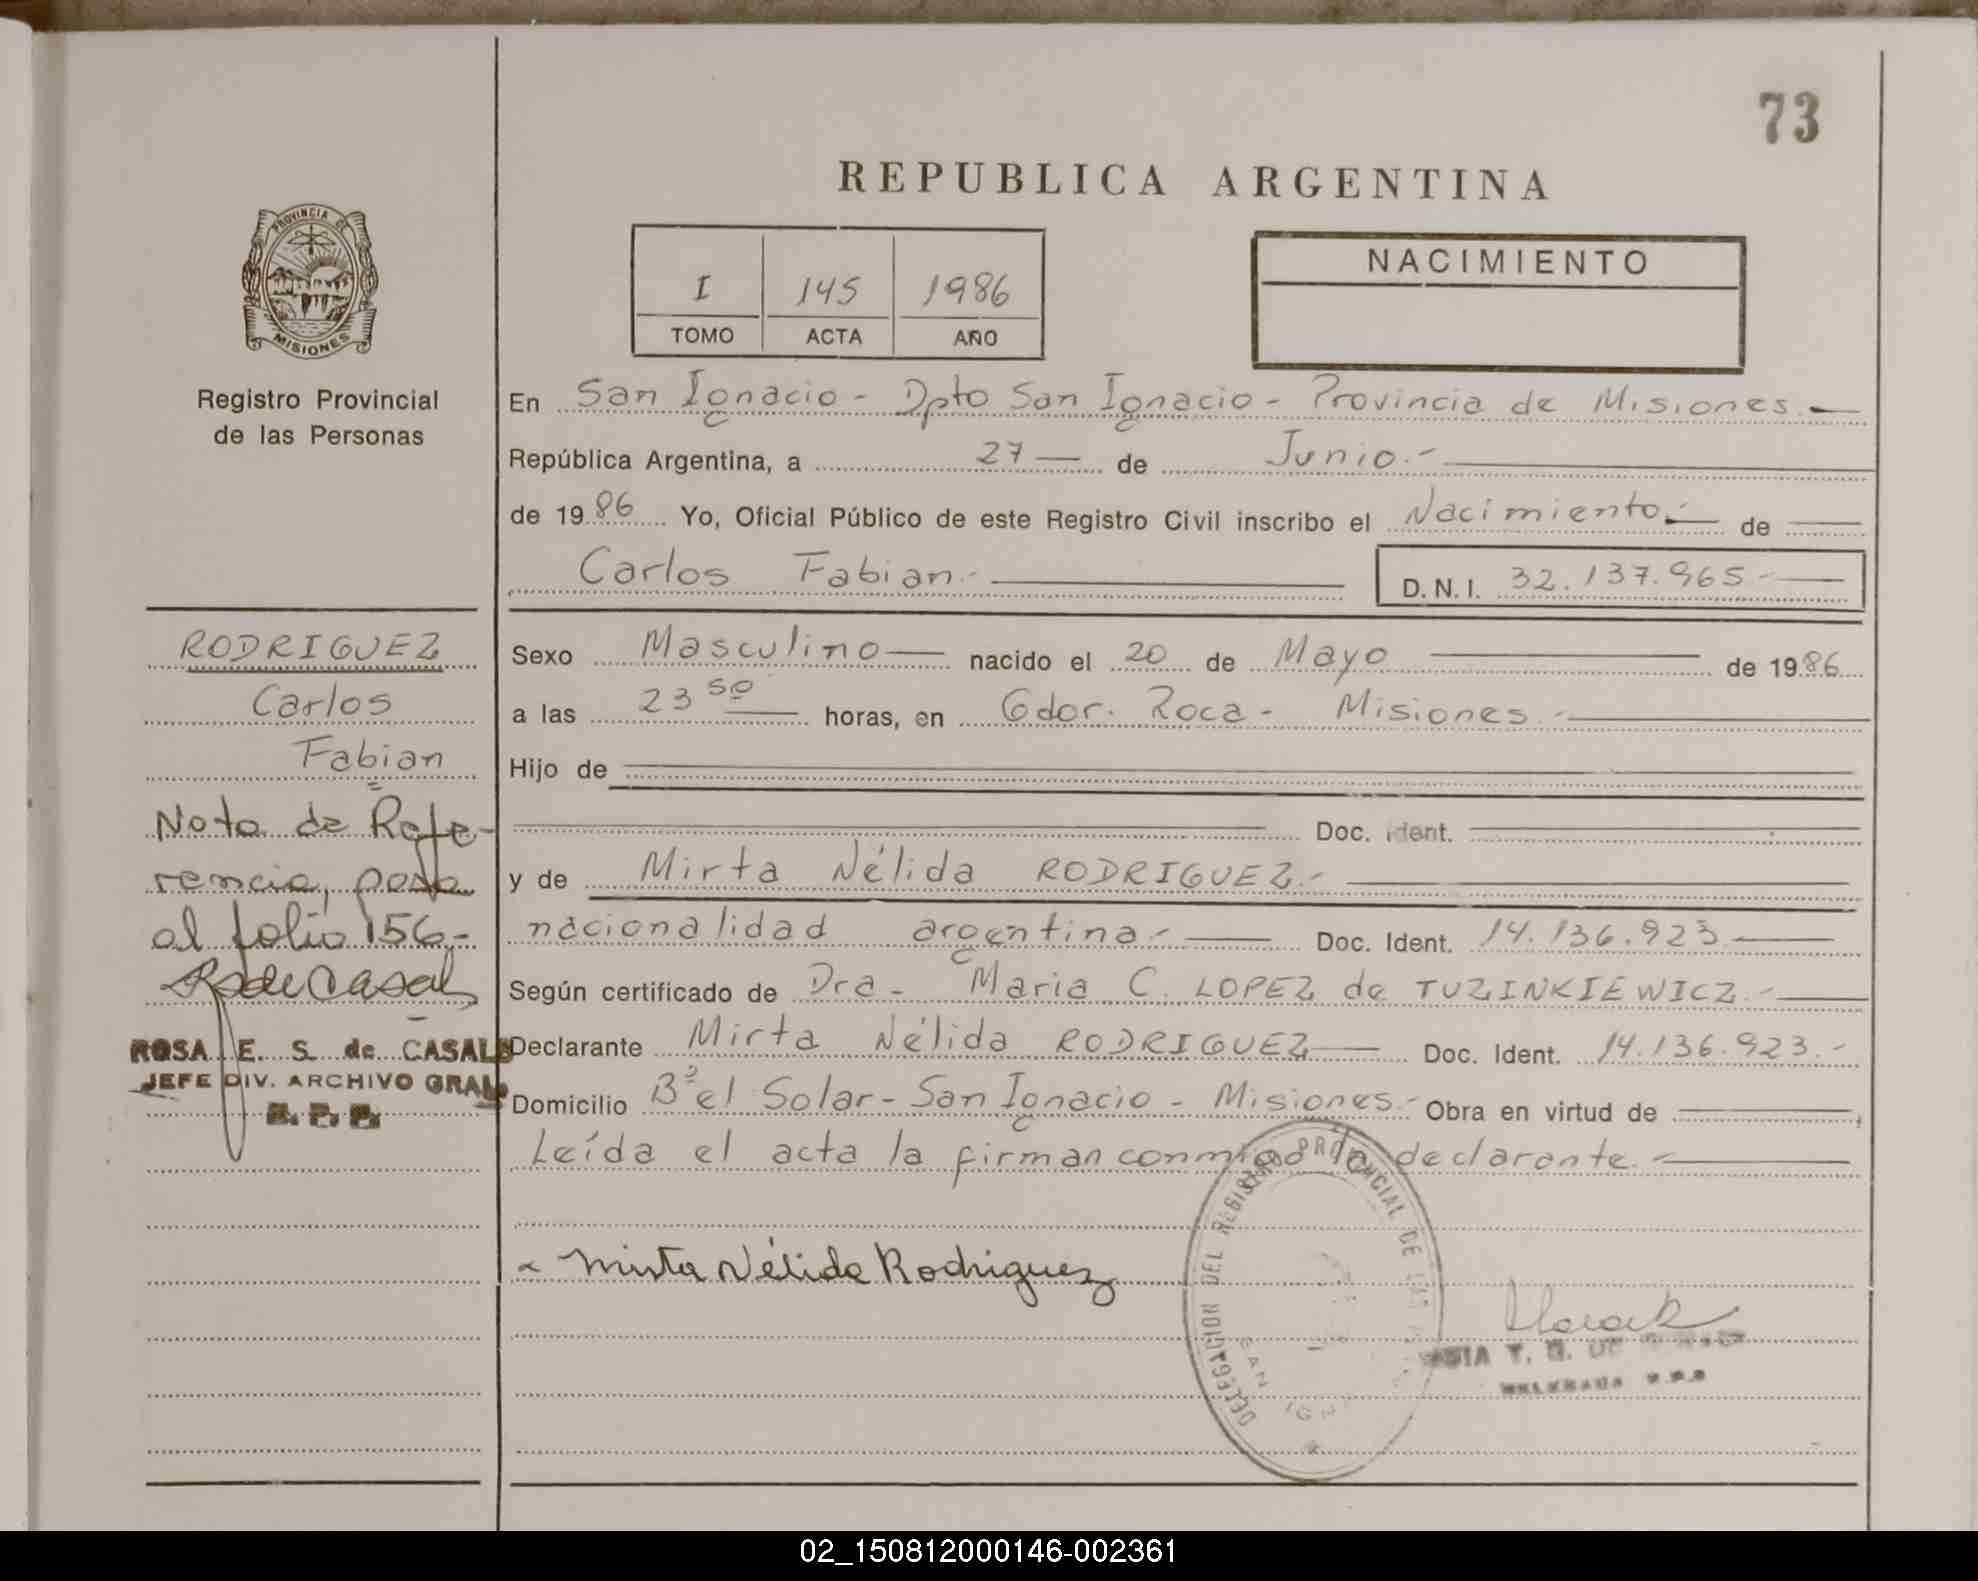 73
REPUBLICA ARGENTINA
PROVINCIA DE
MISIONES
Registro Provincial
de las Personas
I 145 1986
TOMO ACTA AÑO
NACIMIENTO
En San Ignacio - Dpto San Ignacio - Provincia de Misiones.-
República Argentina, a 27 de Junio.-
de 1986 Yo, Oficial Público de este Registro Civil inscribo el Nacimiento.- de
Carlos Fabian.- D.N.I. 32.137.965-
RODRIGUEZ
Carlos
Fabian
Sexo Masculino nacido el 20 de Mayo de 1986
a las 23 50 horas, en Gdor. Roca - Misiones.-
Hijo de
Doc. ident.
y de Mirta Nélida RODRIGUEZ.-
nacionalidad argentina.- Doc. Ident. 14.136.923
Según certificado de Dra- Maria C. LOPEZ de TUZINKIEWICZ.-
Declarante Mirta Nélida RODRIGUEZ Doc. Ident. 14.136.923.-
Domicilio Bº el Solar - San Ignacio - Misiones.- Obra en virtud de
Leída el acta la firman conmigo la declarante.-
Nota de Refe-
rencia, pasa
al folio 156.-
RSdeCasals
ROSA E. S. de CASALS
JEFE DIV. ARCHIVO GRAL
R. P. P.
Mirta Nélida Rodriguez
DELEGACION DEL REGISTRO PROVINCIAL DE LAS
SAN IG
02_150812000146-002361